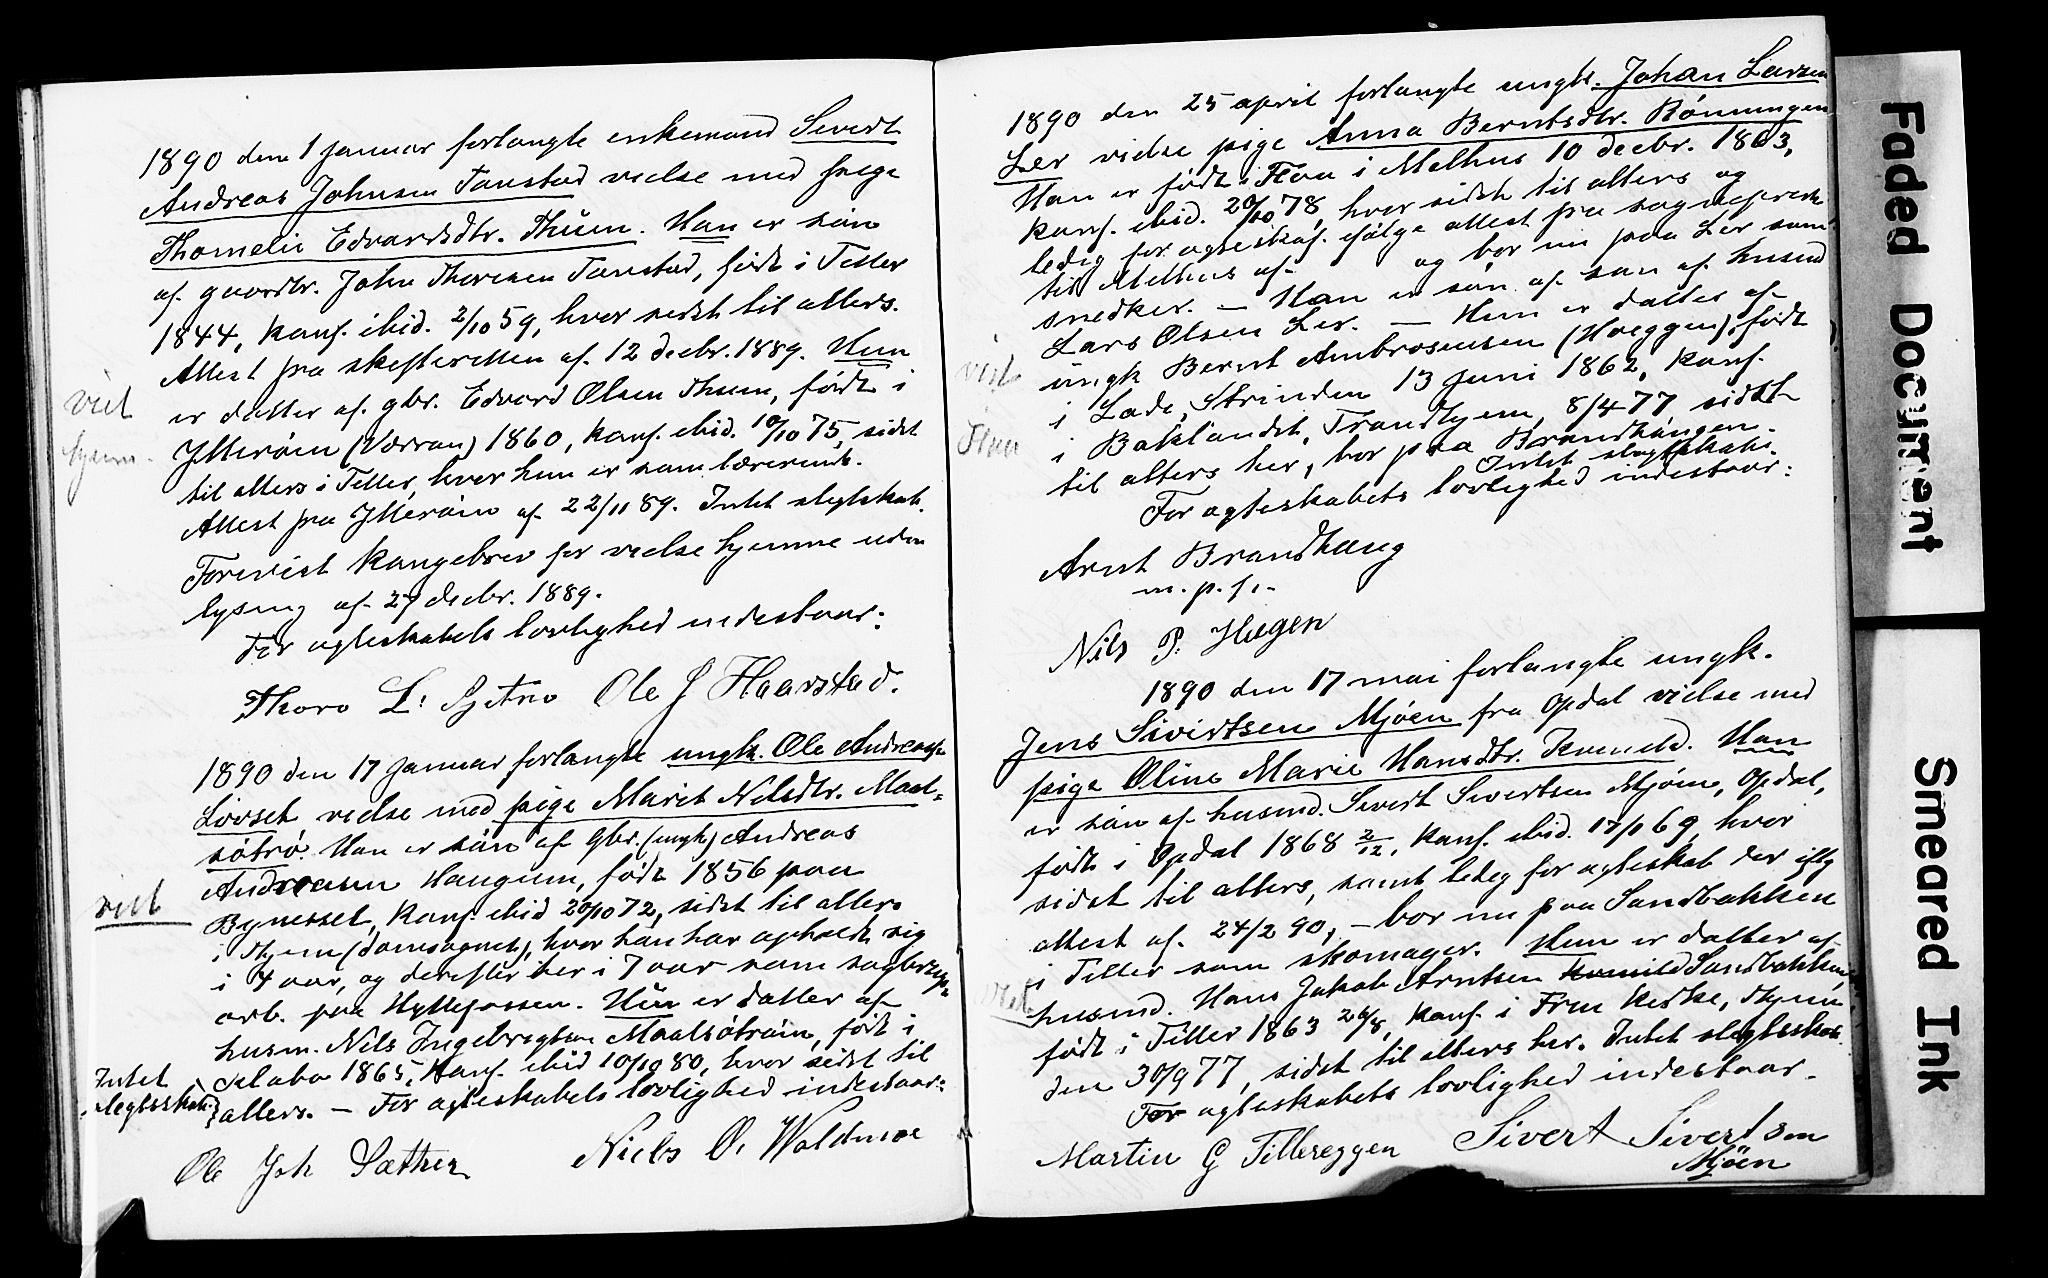 1890 den 1 januar forlangte enkemand Sivert
Andreas Johnsen Tanstad vielse med pige
Thomelie Edvardsdtr. Thuen. Han er søn
af gaardbr. John Thoresen Tanstad, født i Tiller
1844, konf. ibid. 2/10 59, hvor sidst til alters.
Attest fra skifteretten af 12 decbr. 1889. Hun
er datter af gbr. Edvard Olsen Thuen, født i
Ytterøen (Værran) 1860, konf. ibid. 10/10 75, sidst
til alters i Tiller, hvor hun er som lærerinde.
Attest fra Ytterøen af 22/11 89. Intet slegtskab.
Forevist kongebrev for vielse hjemme uden
lysning af 27 decbr. 1889.
For ægteskabets lovlighed indestaar:
viet
hjem.
Thore L. Sjetno Ole J Haarstad.
1890 den 17 januar forlangte ungk. Ole Andreass.
Lovset vielse med pige Marit Nilsdtr. Maal-
søtrø. Han er søn af Gbr. (ungk.) Andreas
Andreasen Haugum, født 1856 paa
Bynesset, konf. ibid 20/10 72, sidst til alters
i Thjem (domsognet), hvor han har opholdt sig
i 4 aar, og derefter her i 7 aar som sagbrugs-
arb. paa Hyttefossen. Hun er datter af
husm. Nils Ingebrigtsen Maalsøtrøen, født i
Selabo 1865, konf. ibid 10/10 80, hvor sidst til
alters. — For ægteskabets lovlighed indestaar:
viet
Intet
slegtsskab
Ole Joh Sæther Niels O. Waldmoe
1890 den 25 april forlangte ungk. Johan Larsen
Ler vielse pige Anna Berntsdtr. Rønningen
Han er født i Flaa i Melhus 10 decbr. 1863,
konf. ibid. 20/10 78, hvor sidst til alters og
ledig for ægteskab ifølge attest fra sognepresten
til Melhus af og bor nu paa Ler som
snedker. — Han er søn af søn af husmd
Lars Olsen Ler. — Hun er datter af
ungk Bernt Ambrosiussen (Hoeggen), født
i Lade, Strinden 13 juni 1862, konf.
i Baklandet, Trondhjem, 8/4 77, sidst
til alters her, bor paa Brandhaugen.
Intet slegtskab.
For ægteskabets lovlighed indestaar:
viet
Arnt Brandhaug
m. p. f.
Nils P. Hagen
1890 den 17 mai forlangte ungk.
Jens Sivertsen Mjøen fra Opdal vielse med
pige Oline Marie Hansdtr. Kvenild. Han
er søn af husmd. Sivert Sivertsen Mjøen, Opdal,
født i Opdal 1868 2/12, konf. ibid. 17/1 69, hvor
sidst til alters, samt ledig for ægteskab der iflg
attest af 24/2 90, — bor nu paa Sandbakken
i Tiller som skomager. Hun er datter af
husmd. Hans Jakob Arntsen Kvenild Sandbakken,
født i Tiller 1863 26/8, konf. i Frue Kirke, Thjem
den 30/9 77, sidst til alters her. Intet slegtsskab.
For ægteskabets lovlighed indestaar.
viet
Martin G Tillereggen Sivert Sivertsen
Mjøen
Faded Document
Smeared Ink